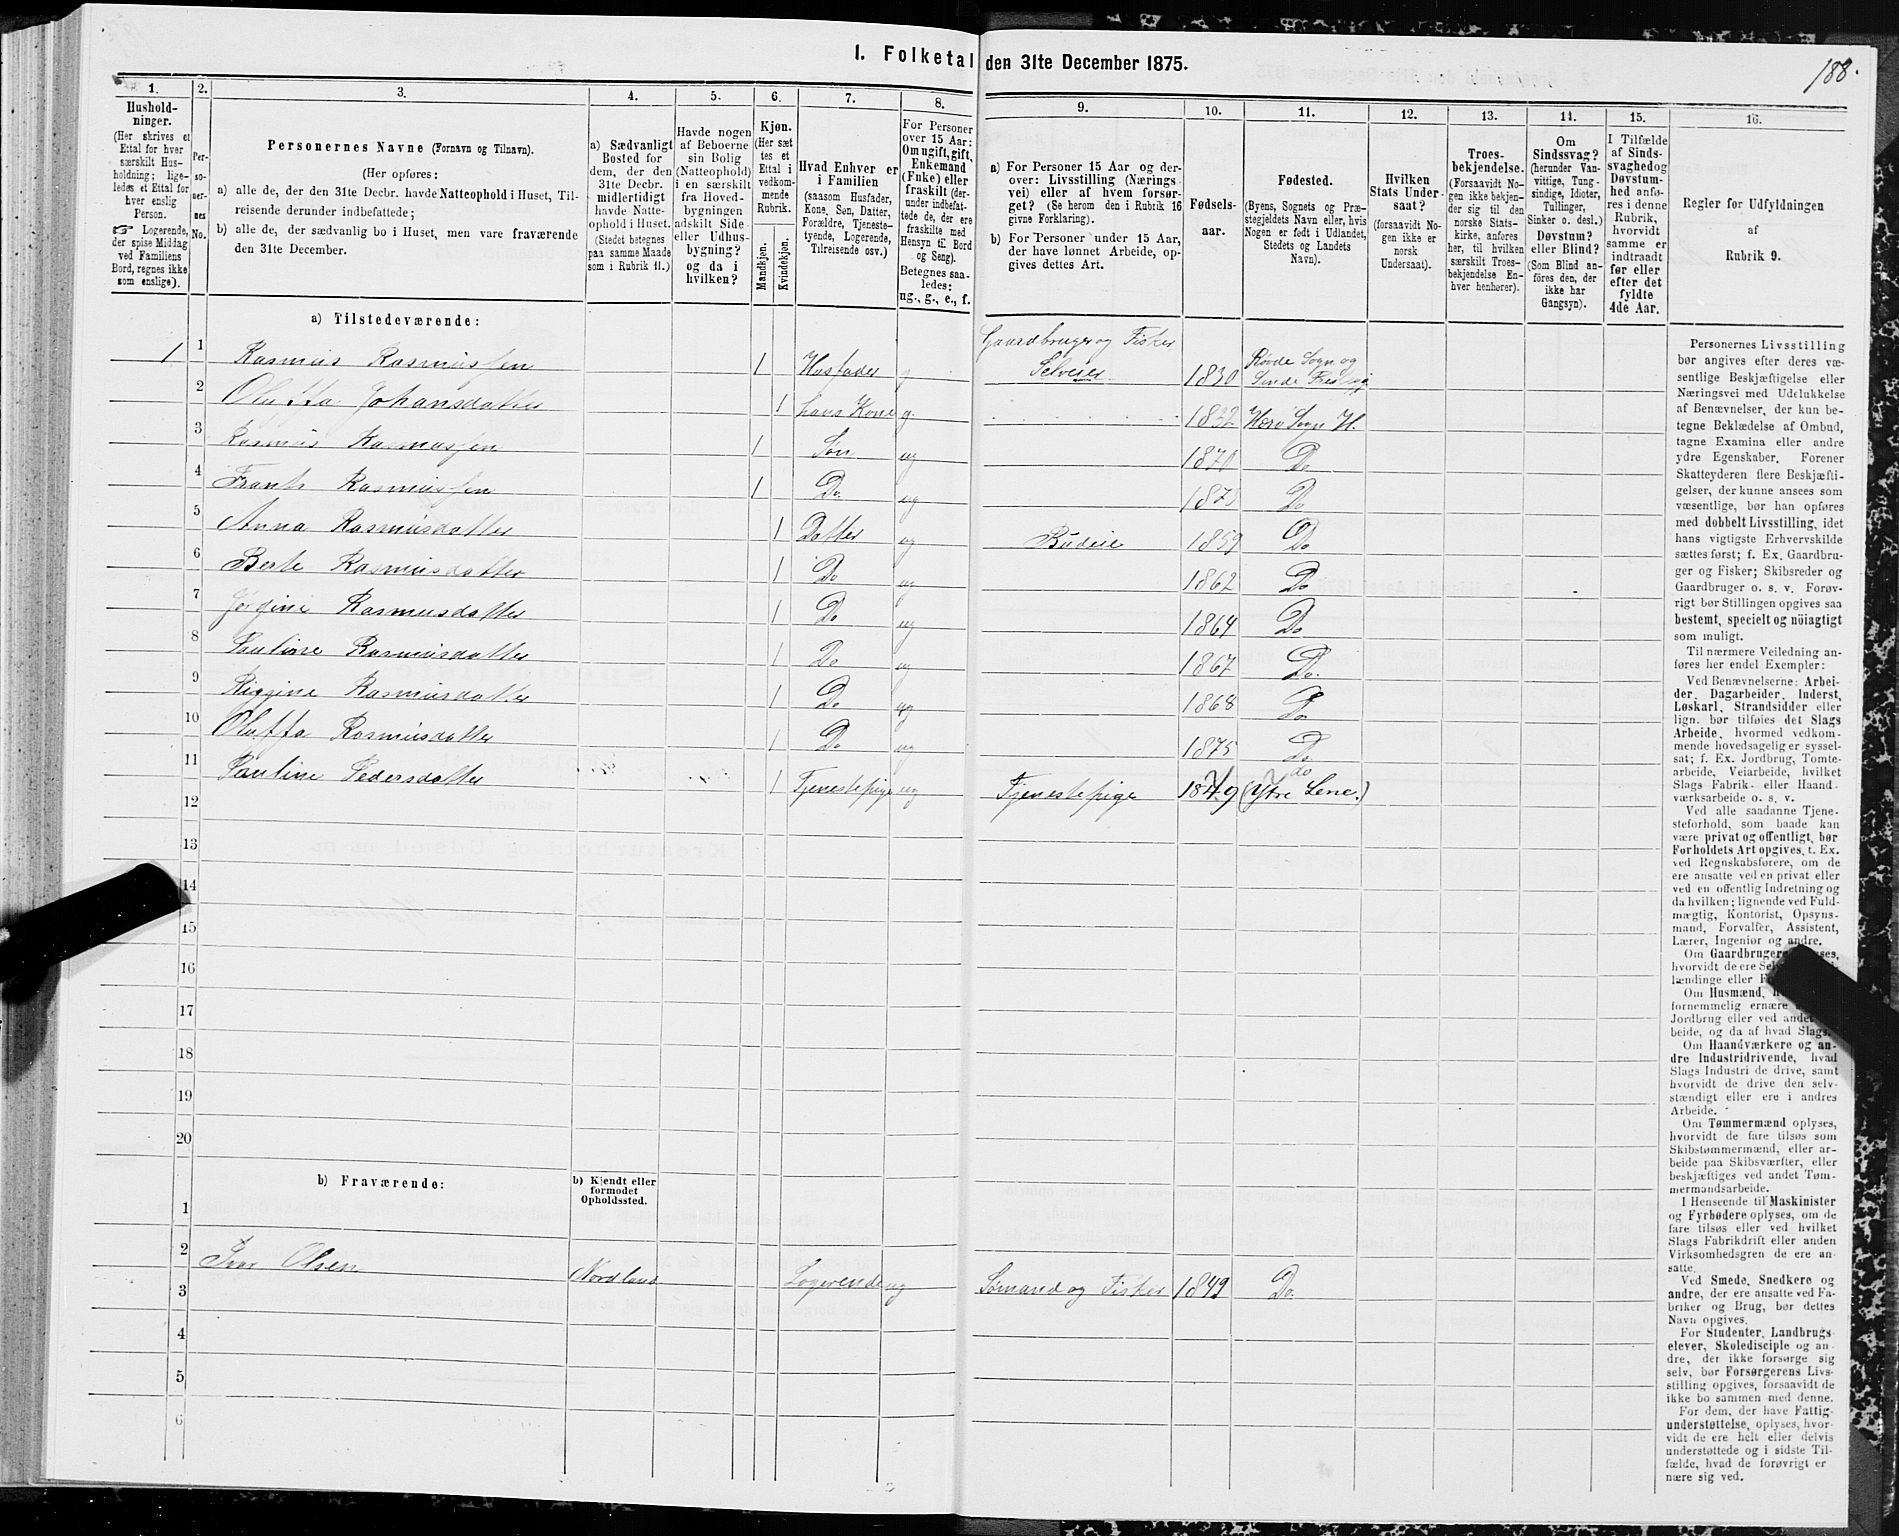 188.
I. Folketal den 31te December 1875.
1.
Hushold-
ninger.
(Her skrives et
Ettal for hver
særskilt Hus-
holdning; lige-
ledes et Ettal for
hver enslig
Person.
☞ Logerende,
der spise Middag
ved Familiens
Bord, regnes ikke
som enslige).
2.
Per-
so-
ner-
nes
No.
3.
Personernes Navne (Fornavn og Tilnavn).
(Her opføres:
a) alle de, der den 31te Decbr. havde Natteophold i Huset, Til-
reisende derunder indbefattede;
b) alle de, der sædvanlig bo i Huset, men vare fraværende
den 31te December.
4.
a) Sædvanligt
Bosted for
dem, der den
31te Decbr.
midlertidigt
havde Natte-
ophold i Huset.
(Stedet betegnes
paa samme Maade
som i Rubrik 11.)
5.
Havde nogen
af Beboerne
sin Bolig
(Natteophold)
i en særskilt
fra Hoved-
bygningen
adskilt Side-
eller Udhus-
bygning?
og da i
hvilken?
6.
Kjøn.
(Her sæt
tes et
Ettal i
vedkom-
mende
Rubrik.
Mandkjøn.
Kvindekjøn.
7.
Hvad Enhver er
i Familien
(saasom Husfader,
Kone, Søn, Datter,
Forældre, Tjeneste-
tyende, Logerende,
Tilreisende osv.)
8.
For Personer
over 15 Aar:
Om ugift, gift,
Enkemand
(Enke) eller
fraskilt (der-
under indbefat-
tede de, der ere
fraskilte med
Hensyn til Bord
og Seng).
Betegnes saa-
ledes:
ug., g., e., f.
9.
a) For Personer 15 Aar og der-
over: Livsstilling (Nærings-
vei) eller af hvem forsør-
get? (Se herom den i Rubrik 16
givne Forklaring).
b) For Personer under 15 Aar,
der have lønnet Arbeide, op-
gives dettes Art.
10.
Fødsels-
aar.
11.
Fødested.
(Byens, Sognets og Præ-
stegjeldets Navn eller, hvis
Nogen er født i Udlandet,
Stedets og Landets
Navn).
12.
Hvilken
Stats Under-
saat?
(forsaavidt No-
gen ikke er
norsk
Undersaat).
13.
Troes-
bekjendelse.
(Forsaavidt No-
gen ikke bekjen-
der sig til den
norske Stats-
kirke, anføres
her, til hvilken
særskilt Troes-
bekjendelse En-
hver henhører).
14.
Om
Sindssvag?
(herunder Van-
vittige, Tung-
sindige, Idioter,
Tullinger,
Sinker o. desl.)
Døvstum?
eller Blind?
(Som Blind an-
føres den, der
ikke har
Gangsyn).
15.
I Tilfælde
af Sinds-
svaghed og
Døvstum-
hed anfø-
res i denne
Rubrik,
hvorvidt
samme er
indtraadt
før eller
efter det
fyldte
4de Aar.
16.
Regler for Udfyldningen
af
Rubrik 9.
a) Tilstedeværende:
1 1 Rasmus Rasmussen 1 Husfader g Gaardbruger og Fisker Selveier 1830 Røvde Sogn og
2 Oluffa Johansdatter 1 hans Kone g. 1832 Herø Sogn H.
3 Rasmus Rasmussen 1 Søn ug 1870 Do
4 Frants Rasmussen 1 Do. ug 1873 Do
5 Anna Rasmusdatter 1 Datter ug Budeie 1859 Do
6 Berte Rasmusdatter 1 Do ug 1862 Do
7 Jørgine Rasmusdatter 1 Do ug 1864 Do
8 Pauline Rasmusdatter 1 Do ug 1867 Do.
9 Riggine Rasmusdatter 1 Do ug 1868 Do
10 Oluffa Rasmusdatter 1 Do ug 1875 Do
11 Pauline Pedersdatter 1 Tjenestepige ug Tjenestepige 1849 do (Ytre Lene.)
12
13
14
15
16
17
18
19
20
b) Fraværende:
b) Kjendt eller
formodet
Opholdssted.
1
2 Ivar Olsen Nordland Logerende ug Sømand og Fisker 1849 Do.
3
4
5
6
Personernes Livsstilling
bør angives efter deres væ-
sentlige Beskjæftigelse eller
Næringsvei med Udelukkelse
af Benævnelser, der kun be-
tegne Beklædelse af Ombud,
tagne Examina eller andre
ydre Egenskaber. Forener
Skatteyderen flere Beskjæfti-
gelser, der kunne ansees som
væsentlige, bør han opføres
med dobbelt Livsstilling, idet
hans vigtigste Erhvervskilde
sættes først; f. Ex. Gaardbru-
ger og Fisker; Skibsreder og
Gaardbruger o. s. v. Forøv-
rigt bør Stillingen opgives saa
bestemt, specielt og nöiagtigt
som muligt.
Til nærmere Veiledning an-
føres her endel Exempler:
Ved Benævnelserne: Arbei-
der, Dagarbeider, Inderst,
Løskarl, Strandsidder eller
lign. bør tilføies det Slags
Arbeide, hvormed vedkom-
mende hovedsagelig er syssel-
sat; f. Ex. Jordbrug, Tomte-
arbeide, Veiarbeide, hvilket
Slags Fabrik- eller Haand-
værksarbeide o. s. v.
Ved alle saadanne Tjene-
steforhold, som baade kan
være privat og offentligt, bør
Forholdets Art opgives, t. Ex.
ved Regnskabsførere, om de
ere ansatte ved en privat eller
ved en offentlig Indretning og
da hvilken; lignende ved Fuld-
mægtig, Kontorist, Opsyns-
mand, Forvalter, Assistent,
Lærer, Ingeniør og andre.
Om Gaardbrugere
hvorvidt de ere
lændinge eller
Om Husmænd,
fornemmelig ernære
Jordbrug eller ved andet
beide, og da af hvad Slags.
Om Haandværkere og an-
dre Industridrivende, hvad
Slags Industri de drive, samt
hvorvidt de drive den selv-
stændigt eller ere i andres
Arbeide.
Om Tømmermænd oplyses,
hvorvidt de fare tilsøs som
Skibstømmermænd, eller ar-
beide paa Skibsværfter, eller
beskjæftiges ved andet Tøm-
mermandsarbeide.
I Henseende til Maskinister
og Fyrbødere oplyses, om de
fare tilsøs eller ved hvilket
Slags Fabrikdrift eller anden
Virksomhedsgren de ere an-
satte.
Ved Smede, Snedkere og
andre, der ere ansatte ved Fa-
briker og Brug, bør dettes
Navn opgives.
For Studenter, Landbrugs
elever, Skoledisciple og an-
dre, der ikke forsørge sig
selv, bør Forsørgerens Livs-
stilling opgives, forsaavidt de
ikke bo sammen med denne.
For dem, der have Fattig-
understøttelse, oplyses, hvor-
vidt de ere helt eller delvis
understøttede og i sidste Til-
fælde, hvad de forøvrigt er
nære sig ved.